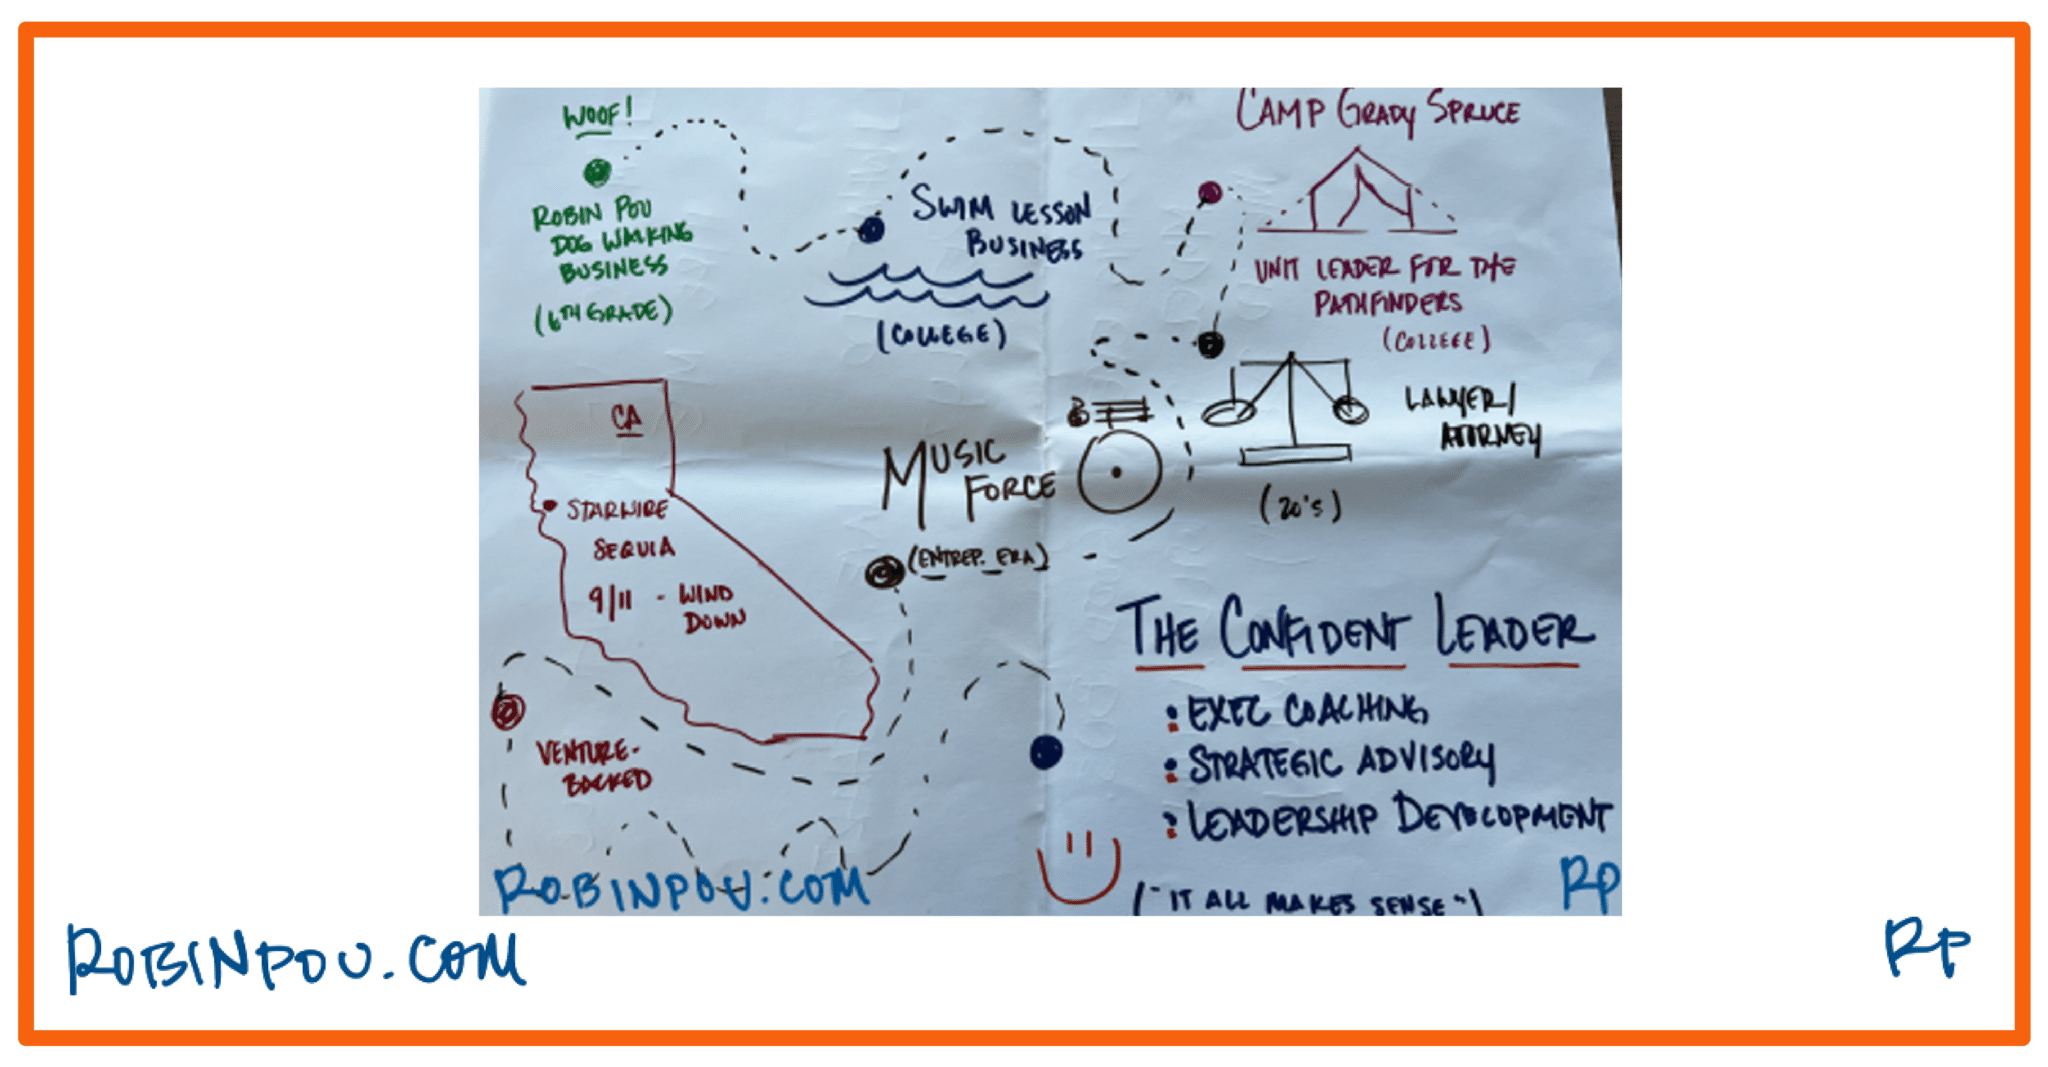 WOOF!
ROBIN POU
DOG WALKING
BUSINESS
(6TH GRADE)
SWIM LESSON
BUSINESS
(COLLEGE)
CAMP GRADY SPRUCE
UNIT LEADER FOR THE
PATHFINDERS
(COLLEGE)
LAWYER/
ATTORNEY
(20's)
MUSIC
FORCE
(ENTREP. ERA)
CA
STARWIRE
SEQUIA
9/11 - WIND
DOWN
VENTURE-
BACKED
THE CONFIDENT LEADER
: EXEC COACHING
: STRATEGIC ADVISORY
: LEADERSHIP DEVELOPMENT
("IT ALL MAKES SENSE")
ROBINPOU.COM
RP
ROBINPOU.COM
RP